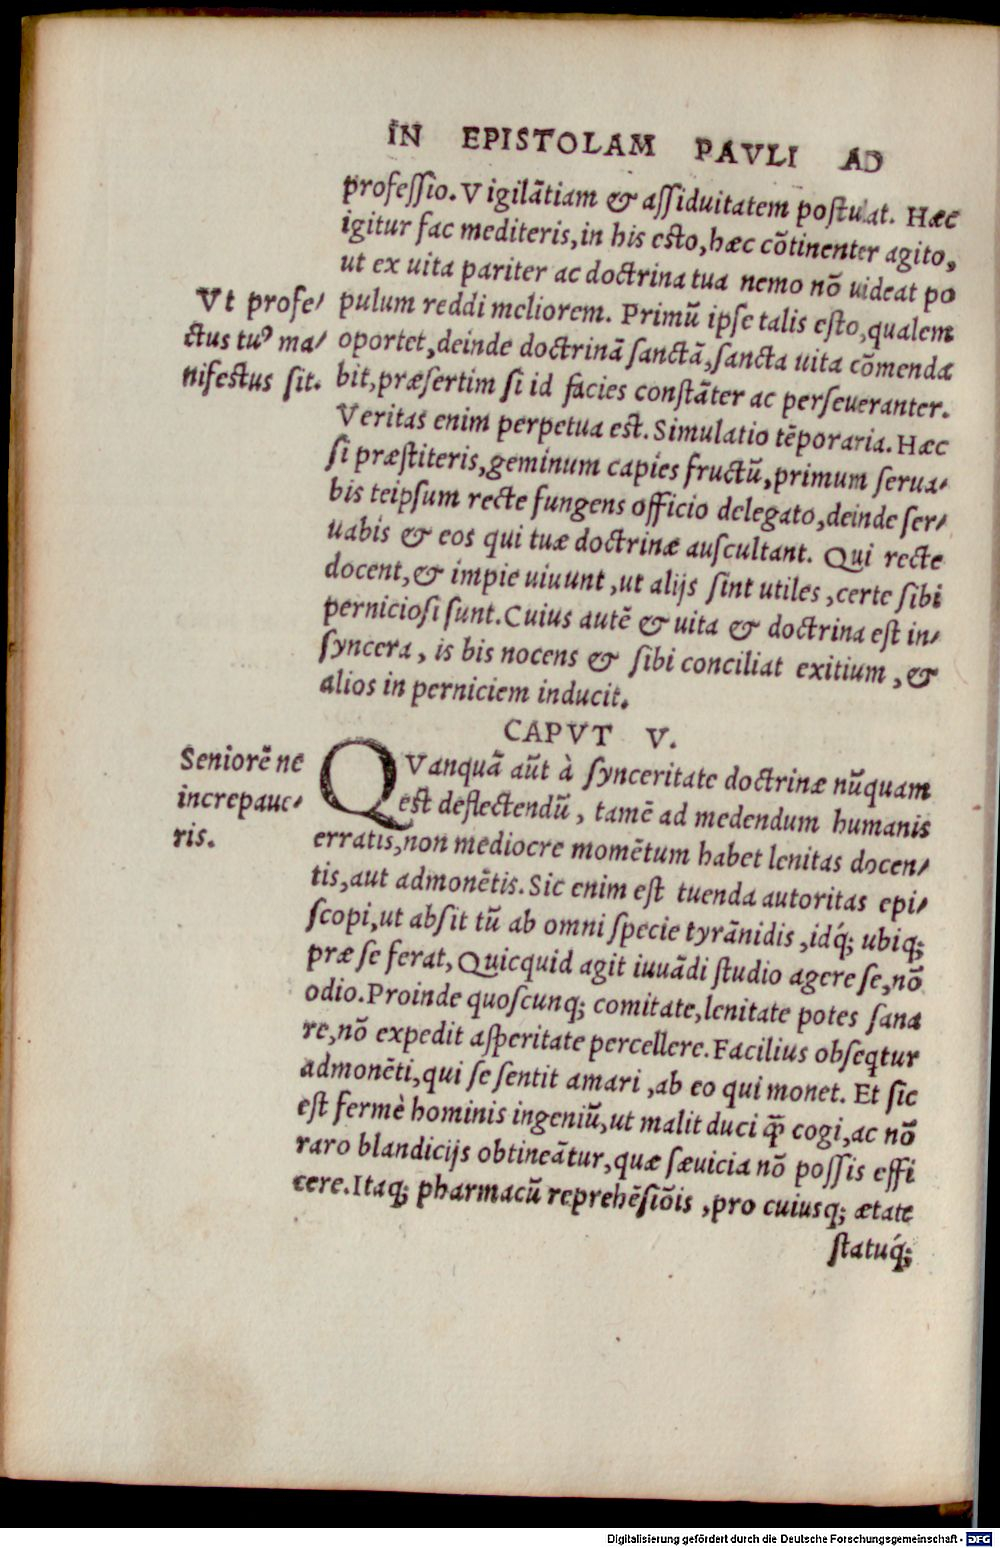 IN EPISTOLAM PAVLI AD
professio. Vigilãtiam & assiduitatem postulat. Hæc
igitur fac mediteris, in his esto, hæc cõtinenter agito,
ut ex uita pariter ac doctrina tua nemo nõ uideat po
pulum reddi meliorem. Primũ ipse talis esto, qualem
oportet, deinde doctrinã sanctã, sancta uita cõmenda
bit, præsertim si id facies constãter ac perseueranter.
Veritas enim perpetua est. Simulatio tẽporaria. Hæc
si præstiteris, geminum capies fructũ, primum serua-
bis teipsum recte fungens officio delegato, deinde ser-
uabis & eos qui tuæ doctrinæ auscultant. Qui recte
docent, & impie uiuunt, ut alijs sint utiles, certe sibi
perniciosi sunt. Cuius autẽ & uita & doctrina est in-
syncera, is bis nocens & sibi conciliat exitium, &
alios in perniciem inducit.
Vt profe-
ctus tuꝰ ma-
nifestus sit.
CAPVT V.
QVanquã aũt à synceritate doctrinæ nũquam
est deflectendũ, tamẽ ad medendum humanis
erratis, non mediocre momẽtum habet lenitas docen-
tis, aut admonẽtis. Sic enim est tuenda autoritas epi-
scopi, ut absit tũ ab omni specie tyrãnidis, idq́; ubiq;
præ se ferat, Quicquid agit iuuãdi studio agere se, nõ
odio. Proinde quoscunq; comitate, lenitate potes sana
re, nõ expedit asperitate percellere. Facilius obseqtur
admonẽti, qui se sentit amari, ab eo qui monet. Et sic
est fermè hominis ingeniũ, ut malit duci q̃ cogi, ac nõ
raro blandicijs obtineãtur, quæ sæuicia nõ possis effi
cere. Itaq; pharmacũ reprehẽsiõis, pro cuiusq; ætate
statuq́;
Seniorẽ ne
increpaue-
ris.
Digitalisierung gefördert durch die Deutsche Forschungsgemeinschaft - DFG